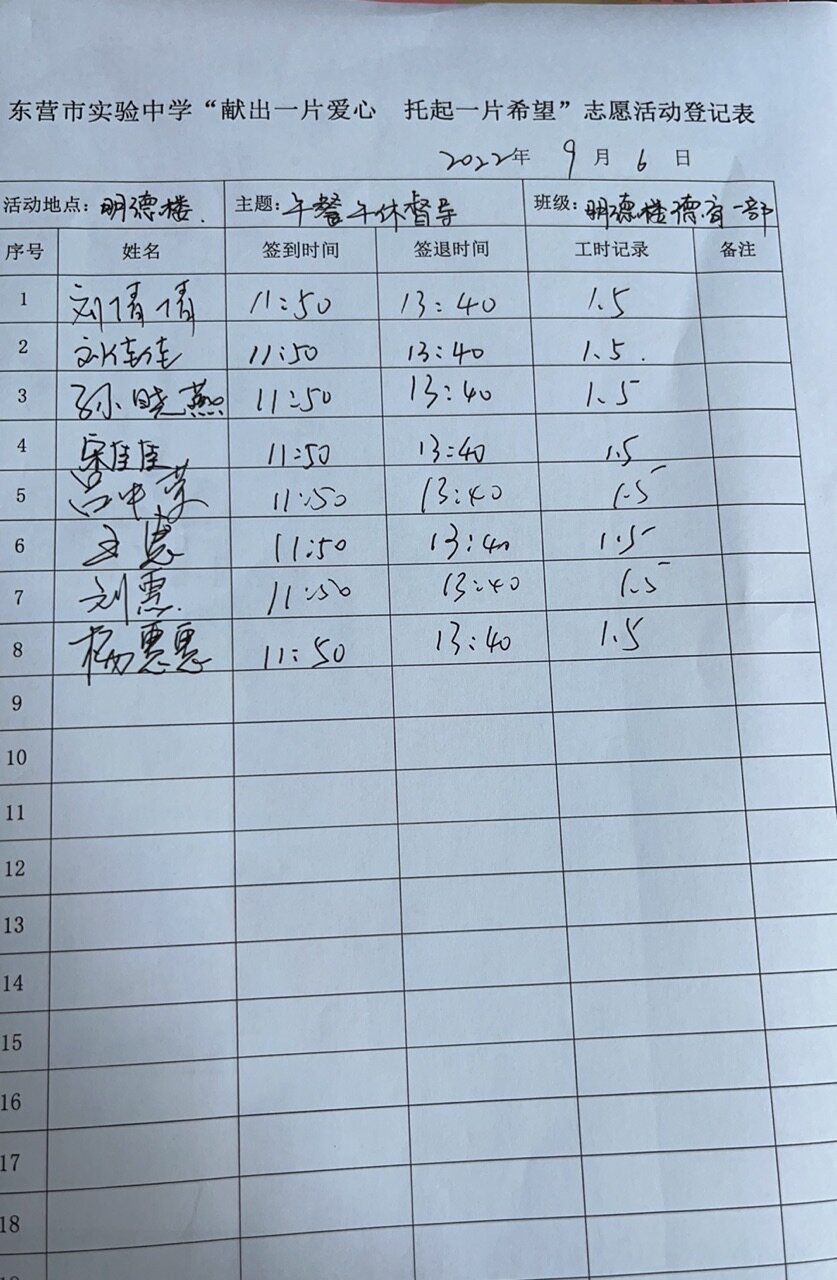 东营市实验中学“献出一片爱心 托起一片希望”志愿活动登记表
2022年 9 月 6 日
活动地点：明德楼. 主题：午餐午休督导 班级：明德楼德育一部
序号 姓名 签到时间 签退时间 工时记录 备注
1 刘倩倩 11:50 13:40 1.5
2 刘佳佳 11:50 13:40 1.5.
3 孙晓燕 11:50 13:40 1.5
4 宋佳佳 11:50 13:40 1.5
5 吕中 11:50 13:40 1.5
6 王 11:50 13:40 1.5
7 刘惠. 11:50 13:40 1.5
8 杨惠惠 11:50 13:40 1.5
9
10
11
12
13
14
15
16
17
18